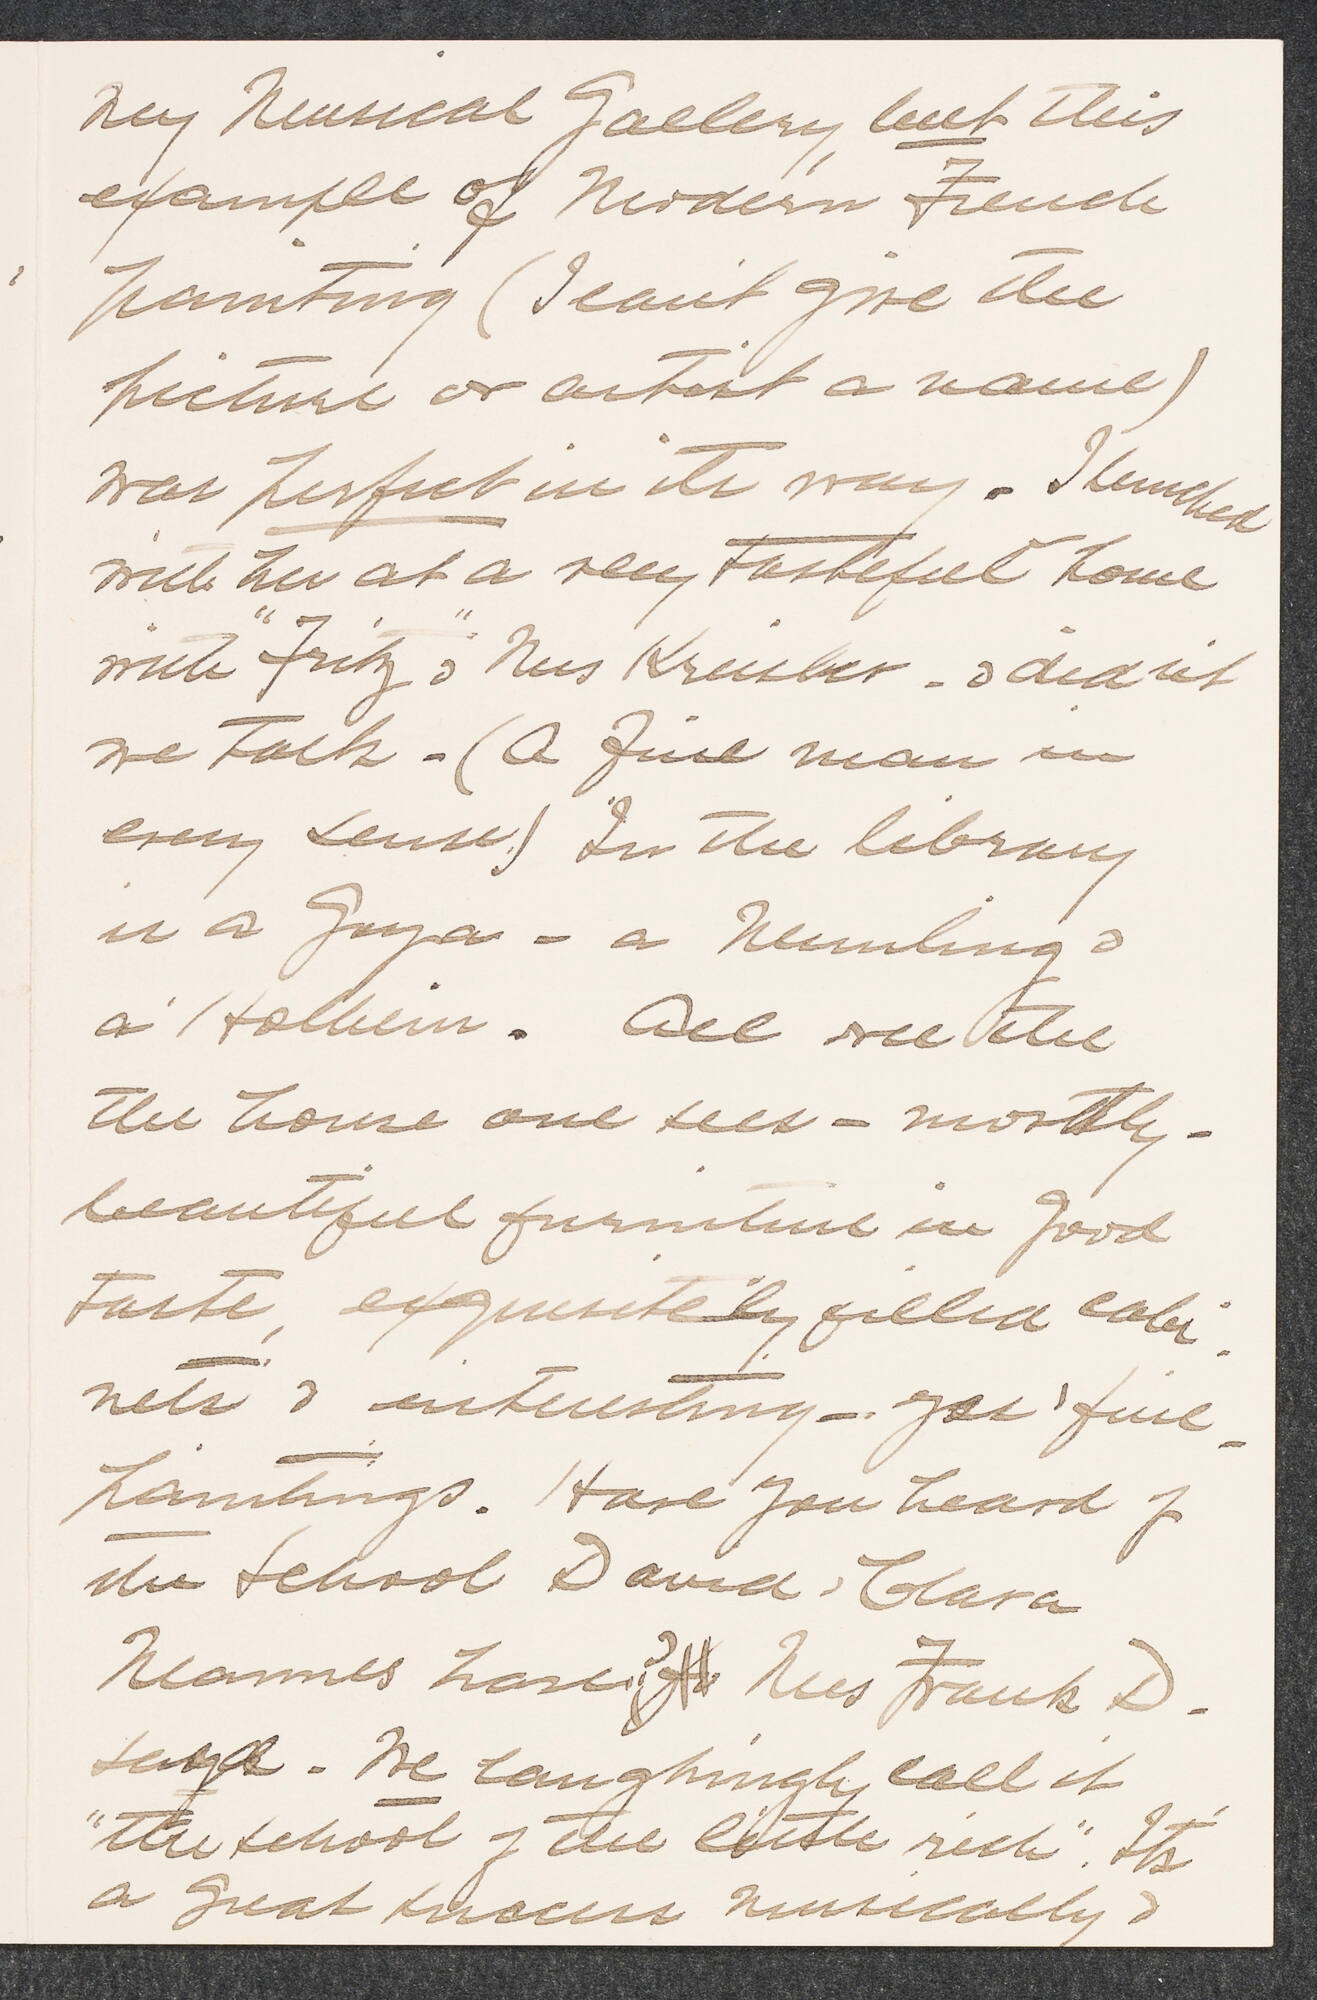 my Musical Gallery, but this
example of Modern French
painting (I can't give the
picture or artist a name)
was perfect in its way. I lunched
with her at a very tasteful home
with "Fritz" & Mrs Kreisler - & didn't
we talk - (A fine man in
every sense) In the library
is a Goya - a Memling &
a Holbein. All over the
the house one sees - mostly -
beautiful furniture in good
taste, exquisitely filled cabi-
nets & interesting - yes, fine -
paintings. Have you heard of
the school David & Clara
Mannes have? Mrs Frank D -
says. We laughingly call it
"the school of the little rich". It's
a great success musically &